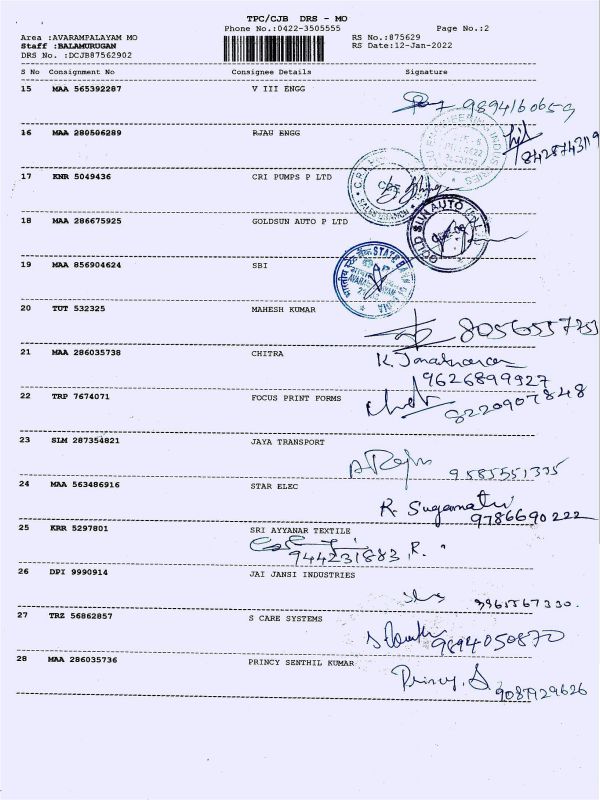 TPC/CJB DRS - MO
Phone No.:0422-3505555 Page No.:2
Area :AVARAMPALAYAM MO RS No.:875629
Staff :BALAMURUGAN RS Date:12-Jan-2022
DRS No. :DCJB87562902
S No Consignment No Consignee Details Signature
15 MAA 565392287 V III ENGG
9894160659
16 MAA 280506289 RJAU ENGG
8428743119
17 KNR 5049436 CRI PUMPS P LTD
18 MAA 286675925 GOLDSUN AUTO P LTD
GOLD SUN AUTO
19 MAA 856904624 SBI
STATE BANK
20 TUT 532325 MAHESH KUMAR
8056557253
21 MAA 286035738 CHITRA
9626899927
22 TRP 7674071 FOCUS PRINT FORMS
8220907848
23 SLM 287354821 JAYA TRANSPORT
9585551335
24 MAA 563486916 STAR ELEC
R. Sugamathi
9786690222
25 KRR 5297801 SRI AYYANAR TEXTILE
944231883, R.
26 DPI 9990914 JAI JANSI INDUSTRIES
27 TRZ 56862857 S CARE SYSTEMS
9894050870
28 MAA 286035736 PRINCY SENTHIL KUMAR
Princy. S
9087929626